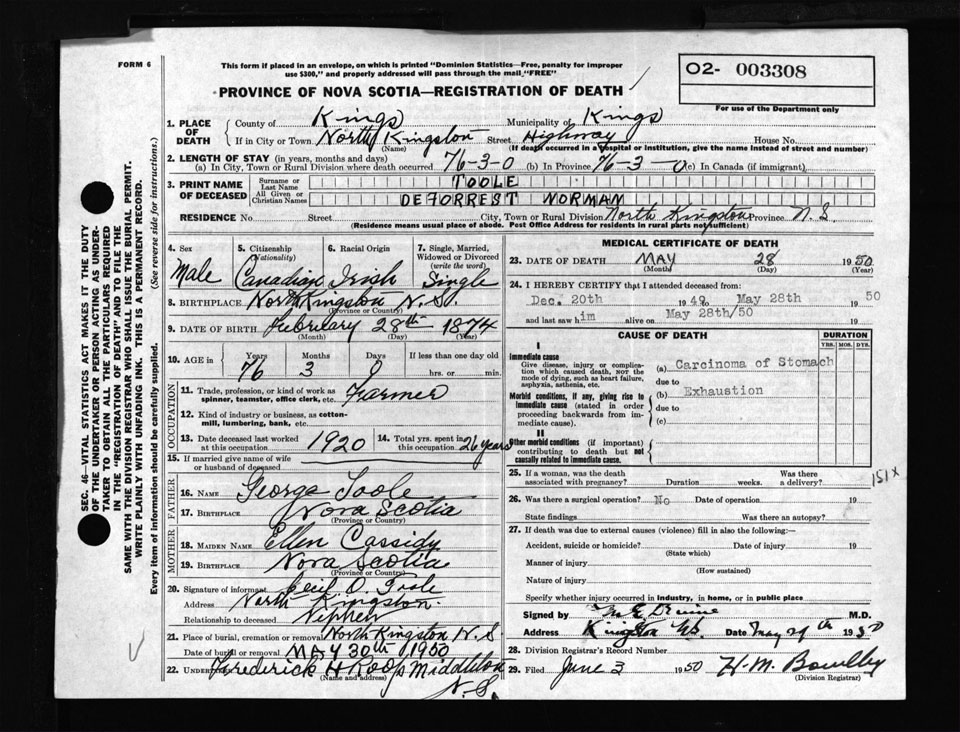 FORM 6
This form if placed in an envelope, on which is printed "Dominion Statistics—Free, penalty for improper
use $300," and properly addressed will pass through the mail "FREE"
O2- 003308
PROVINCE OF NOVA SCOTIA—REGISTRATION OF DEATH
For use of the Department only
1. PLACE OF DEATH { County of Kings Municipality of Kings
If in City or Town North Kingston Street Highway House No.
(Name) (If death occurred in a hospital or institution, give the name instead of street and number)
2. LENGTH OF STAY (in years, months and days)
(a) In City, Town or Rural Division where death occurred 76-3-0 (b) In Province 76-3-0 (c) In Canada (if immigrant)
3. PRINT NAME OF DECEASED { Surname or Last Name TOOLE
All Given or Christian Names DEFORREST NORMAN
RESIDENCE No. Street City, Town or Rural Division North Kingston Province N.S.
(Residence means usual place of abode. Post Office Address for residents in rural parts not sufficient)
4. Sex 5. Citizenship (Nationality) 6. Racial Origin 7. Single, Married, Widowed or Divorced (write the word)
Male Canadian Irish Single
8. BIRTHPLACE North Kingston N.S.
(Province or Country)
9. DATE OF BIRTH February 28th 1874
(Month) (Day) (Year)
10. AGE in { Years Months Days If less than one day old
76 3 0 hrs. or min.
OCCUPATION
11. Trade, profession, or kind of work as spinner, teamster, office clerk, etc. Farmer
12. Kind of industry or business, as cotton-mill, lumbering, bank, etc.
13. Date deceased last worked at this occupation 1920 14. Total yrs. spent in this occupation 26 years
15. If married give name of wife or husband of deceased
FATHER
16. NAME George Toole
17. BIRTHPLACE Nova Scotia
(Province or Country)
MOTHER
18. MAIDEN NAME Ellen Cassidy
19. BIRTHPLACE Nova Scotia
(Province or Country)
20. Signature of informant Cecil O. Toole
Address North Kingston.
Relationship to deceased Nephew
21. Place of burial, cremation or removal North Kingston N.S
Date of burial or removal MAY 30th 1950
22. UNDERTAKER Frederick H Roop Middleton
(Name and address) N.S.
MEDICAL CERTIFICATE OF DEATH
23. DATE OF DEATH MAY 28 1950
(Month) (Day) (Year)
24. I HEREBY CERTIFY that I attended deceased from:
Dec. 20th 1949 May 28th 1950
and last saw him alive on May 28th/50
CAUSE OF DEATH DURATION
YRS. MOS. DYS.
I
Immediate cause
Give disease, injury or complication which caused death, nor the mode of dying, such as heart failure, asphyxia, asthenia, etc.
(a) Carcinoma of Stomach
due to
Morbid conditions, if any, giving rise to immediate cause (stated in order proceeding backwards from immediate cause).
(b) Exhaustion
due to
(c)
II
Other morbid conditions (if important) contributing to death but not causally related to immediate cause.
151x
25. If a woman, was the death associated with pregnancy? Duration weeks. Was there a delivery?
26. Was there a surgical operation? No Date of operation 19
State findings Was there an autopsy?
27. If death was due to external causes (violence) fill in also the following:—
Accident, suicide or homicide? Date of injury 19
(State which)
Manner of injury
(How sustained)
Nature of injury
Specify whether injury occurred in industry, in home, or in public place
Signed by M.D.
Address Kingston N.S. Date May 29th 1950
28. Division Registrar's Record Number
29. Filed June 3 1950 H. M. Bowlby
(Division Registrar)
SEC. 46—VITAL STATISTICS ACT MAKES IT THE DUTY
OF THE UNDERTAKER OR PERSON ACTING AS UNDER-
TAKER TO OBTAIN ALL THE PARTICULARS REQUIRED
IN THE "REGISTRATION OF DEATH" AND TO FILE THE
SAME WITH THE DIVISION REGISTRAR WHO SHALL ISSUE THE BURIAL PERMIT.
WRITE PLAINLY WITH UNFADING INK. THIS IS A PERMANENT RECORD.
Every item of information should be carefully supplied. (See reverse side for instructions.)